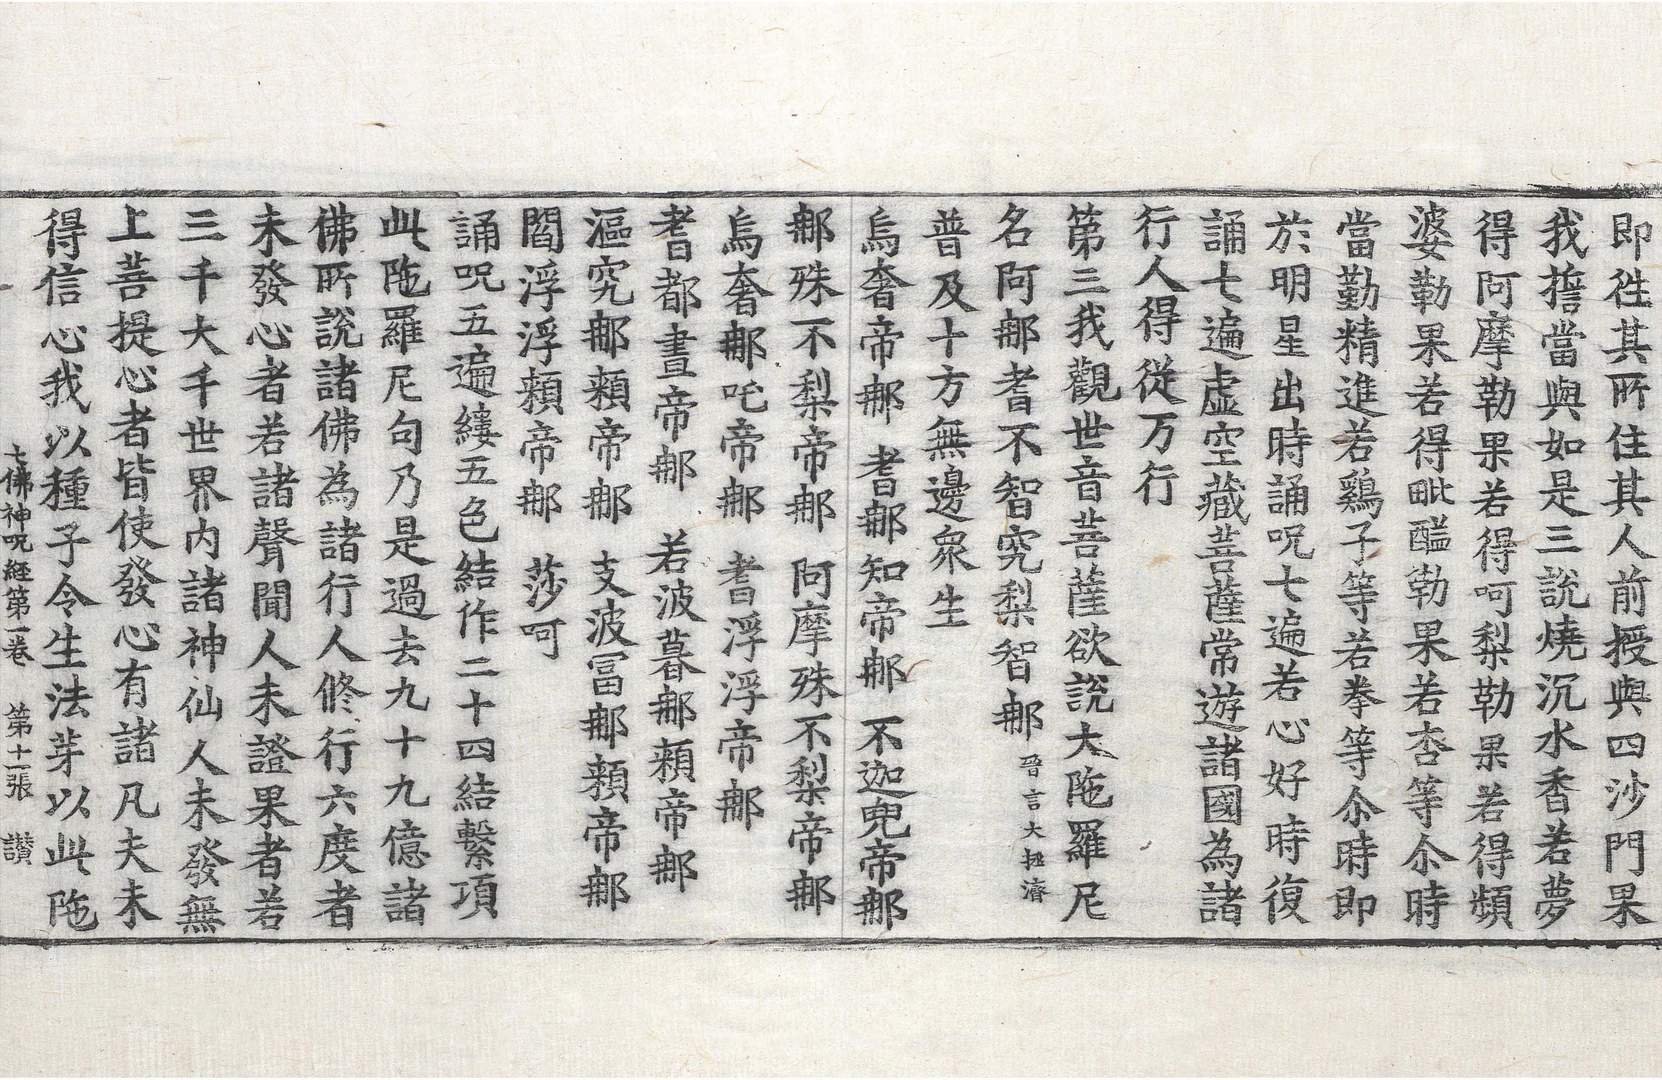 即徃其所住其人前授與四沙門果
我擔當與如是三說燒沉水香若夢
得阿摩勒果若得呵梨勒果若得頻
婆勒果若得毗醯勒果若杏等尒時
當勤精進若鷄子等若拳等尒時即
於明星出時誦呪七遍若心好時復
誦七遍虛空藏菩薩常遊諸國為諸
行人得從万行
第三我觀世音菩薩欲說大陁羅尼
名阿䣍耆不智究梨智䣍 晉言大拯濟
普及十方無邊衆生
烏奢帝䣍 耆䣍知帝䣍 不迦兜帝䣍
䣍殊不梨帝䣍 阿摩殊不梨帝䣍
烏奢䣍吒帝䣍 耆浮浮帝䣍
耆都晝帝䣍 若波暮䣍頼帝䣍
漚究䣍頼帝䣍 支波冨䣍頼帝䣍
閻浮浮頼帝䣍 莎呵
誦呪五遍縷五色結作二十四結繫項
此陁羅尼句乃是過去九十九億諸
佛所說諸佛為諸行人修行六度者
未發心者若諸聲聞人未證果者若
三千大千世界内諸神仙人未發無
上菩提心者皆使發心有諸凡夫未
得信心我以種子令生法芽以此陁
七佛神呪經第一卷 第十一張 讃